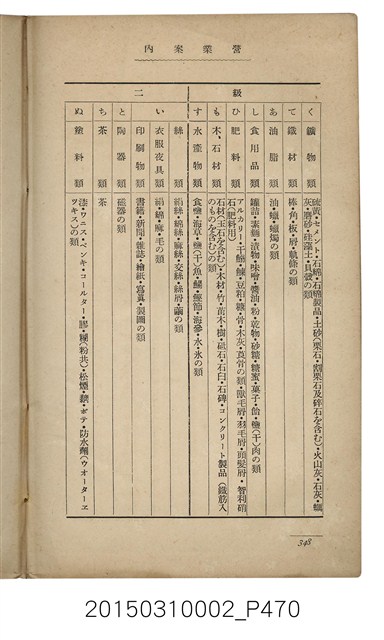 營業案內
級
く鑛物類 硫黃・セメント・石棉・石綿製品・土砂(栗石・割栗石及碎石を含む)・火山灰・石灰・蠣
灰・磨砂・硅藻土・貝殼の類
て鐵材類 棒・角・板・屑・軌條の類
あ油脂類 油・蠟・蠟燭の類
し食用品類 罐詰・素麵・漬物・味噌・醬油・粉・乾物・砂糖・糖蜜・菓子・飴・鹽(干)肉の類
ひ肥料類 アルカリー・豆餠・鰊・豆粕・糠・骨・木灰・莨骨の類・獸毛屑・羽毛屑・頭髮屑・智利硝
石(肥料用)
も木、石材類 石材(玉石を含む)・木材・竹・苗木・樹・砥石・石臼・石碑・コンクリート製品(鐵筋入
のものを含む)の類
す水產物類 食鹽・海草・鹽(干)魚・鯣・鰹節・海參・水・氷の類
二
絲類 絹絲・綿絲・麻絲・交絲・絲屑・繭の類
い衣服夜具類 絹・綿・麻・毛の類
印刷物類 書籍・新聞・雜誌・繪紙・寫眞・製圖の類
と陶器類 磁器の類
ち茶類 茶
ぬ塗料類 漆・ワニス・ペンキ・コールター・膠・糊(粉共)・松煙・鬢・ポテ・防水劑(ウオーターヱ
ツキス)の類
348
20150310002_P470